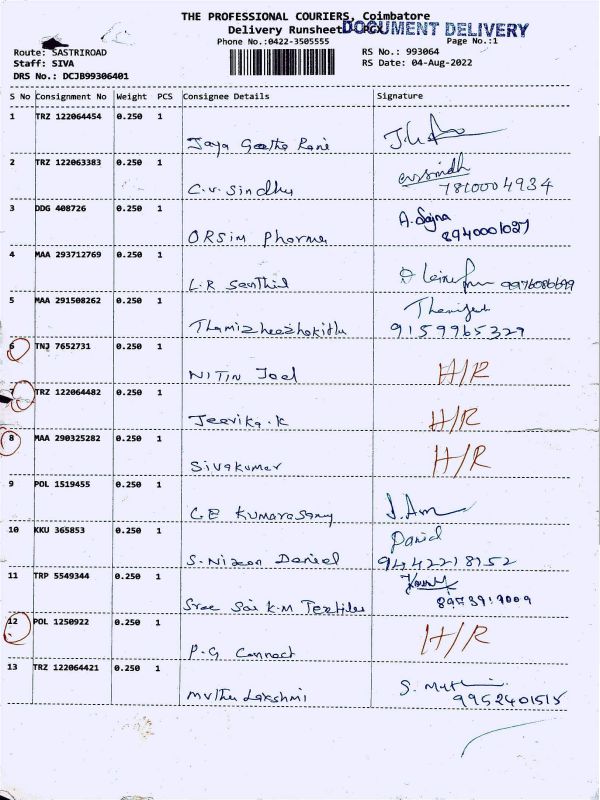 THE PROFESSIONAL COURIERS, Coimbatore
Delivery Runsheet PCX
DOCUMENT DELIVERY
Phone No.:0422-3505555
Page No.:1
Route: SASTRIROAD
RS No.: 993064
Staff: SIVA
RS Date: 04-Aug-2022
DRS No.: DCJB99306401
S No Consignment No Weight PCS Consignee Details Signature
1 TRZ 122064454 0.250 1
Jaya Geetha Rani
2 TRZ 122063383 0.250 1
C.V. Sindhu cvsindh
7810004934
3 DDG 408726 0.250 1
ORSIM Pharma A. Sajna
8940001037
4 MAA 293712769 0.250 1
L.R Senthil 9976086699
5 MAA 291508262 0.250 1
9159965329
6 TNJ 7652731 0.250 1
NITIN Joel H/R
7 TRZ 122064482 0.250 1
Jeevika.K H/R
8 MAA 290325282 0.250 1
Sivakumar H/R
9 POL 1519455 0.250 1
C.E Kumarasamy
10 KKU 365853 0.250 1
Daniel
S. Nixon Daniel 9442218152
11 TRP 5549344 0.250 1
Sree Sai K.M Textiles 8973917009
12 POL 1250922 0.250 1
P.G Connect H/R
13 TRZ 122064421 0.250 1
Muthu Lakshmi S. Muth
9952401515